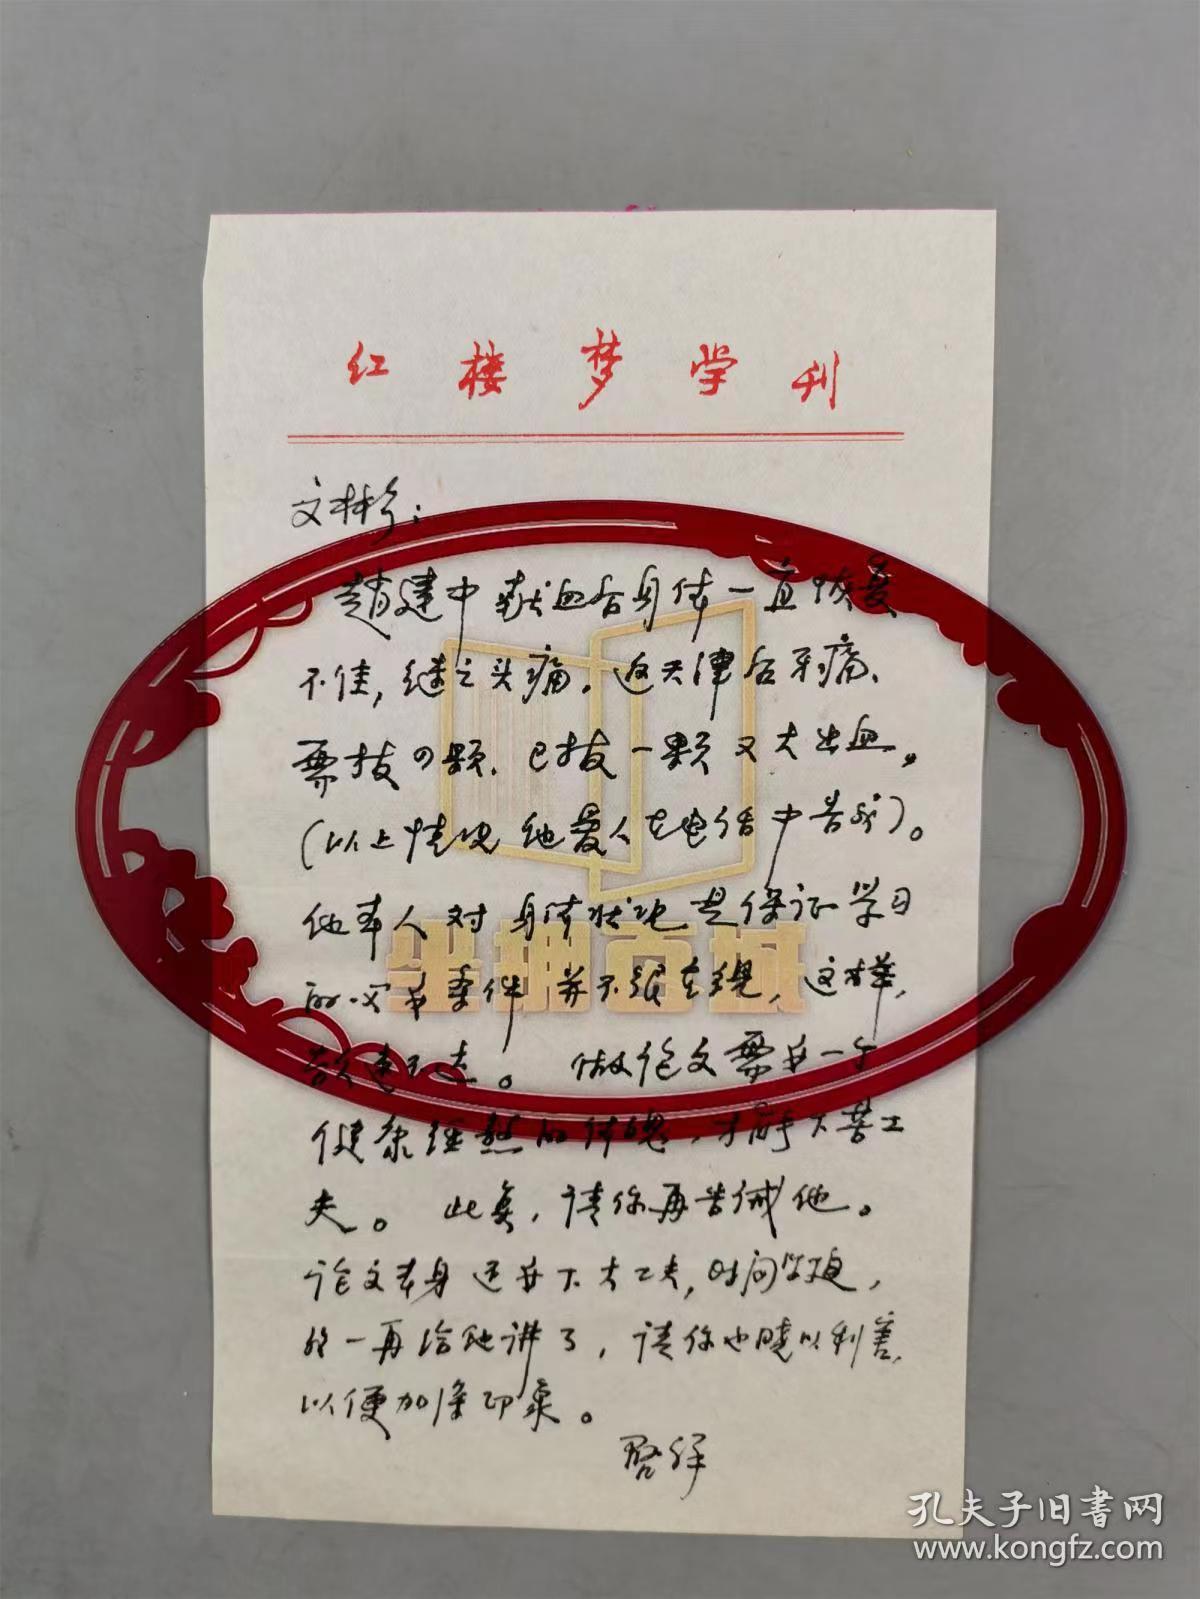 红楼梦学刊
文彬兄：
赵建中献血后身体一直恢复
不佳，继之头痛。返天津后牙痛、
需拔四颗、已拔一颗又大出血。
（以上情况他爱人在电话中告我）。
他本人对身体状况是保证学习
的必要条件并不很重视，这样，
欲速不达。 做论文需要一个
健康的体魄，才能下苦工
夫。 此矣，请你再告诫他。
论文本身还要下大工夫，时间紧迫，
我一再给他讲了，请你也晓以利害，
以便加深印象。
启祥
孔夫子旧书网
www.kongfz.com